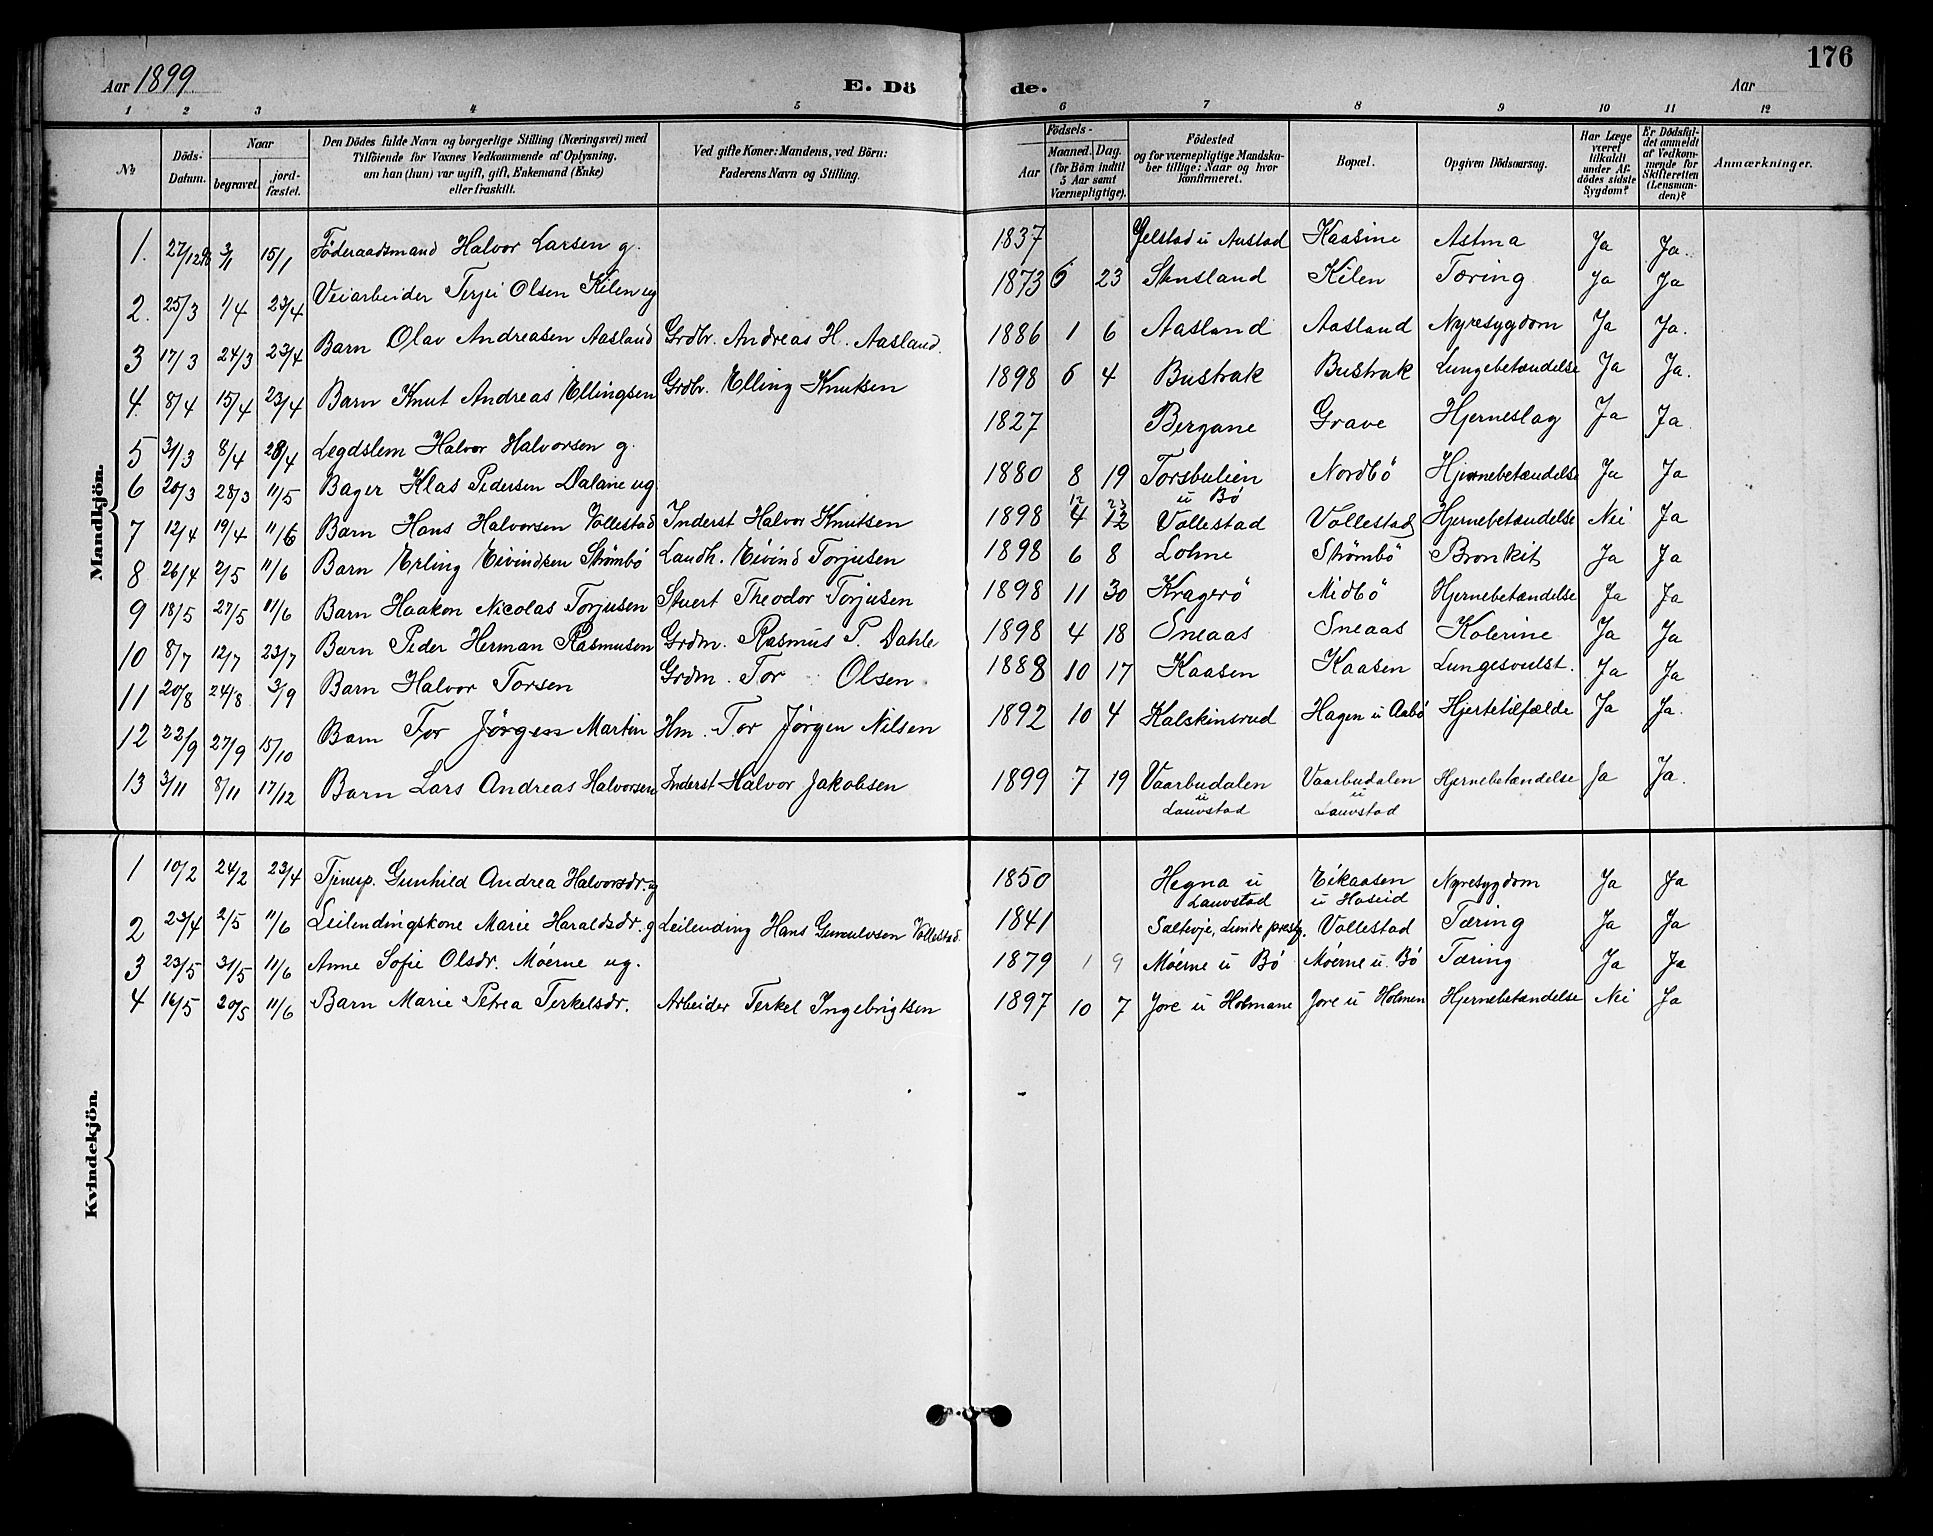 176
Aar 1899.
E. Dö de.
Aar
1 2 3 4 5 6 7 8 9 10 11 12
№ Döds-Datum. Naar begravet. jord-fæstet. Den Dödes fulde Navn og borgerlige Stilling (Næringsvei) med Tilföiende for Voxnes Vedkommende af Oplysning, om han (hun) var ugift, gift, Enkemand (Enke) eller fraskilt. Ved gifte Koner: Mandens, ved Börn: Faderens Navn og Stilling. Födsels- Aar Maaned. Dag. (for Börn indtil 5 Aar samt Værnepligtige). Födested og for værnepligtige Mandskaber tillige: Naar og hvor konfirmeret. Bopæl. Opgiven Dödsaarsag. Har Læge været tilkaldt under Afdödes sidste Sygdom? Er Dödsfaldet anmeldt af Vedkommende for Skifteretten (Lensmanden)? Anmærkninger.
Mandkjön.
1. 27/12 98 3/1 15/1 Föderaadsmand Halvor Larsen g. 1837 Gjelstad u Austad Kaasine Astma Ja Ja.
2. 25/3 1/4 23/4 Veiarbeider Terjei Olsen Kilen ug 1873 6 23 Stensland Kilen Tæring Ja Ja
3 17/3 24/3 23/4 Barn Olav Andreasen Aasland Grdbr. Andreas H. Aasland. 1886 1 6 Aasland Aasland Nyresygdom Ja Ja.
4. 8/4 15/4 23/4 Barn Knut Andreas Ellingsen Grdbr. Elling Knutsen 1898 6 4 Bustrak Bustrak Lungebetændelse Ja Ja.
5 31/3 8/4 28/4 Legdslem Halvor Halvorsen g. 1827 Bergane Grave Hjerneslag Ja Ja.
6 20/3 28/3 11/5 Bager Klas Pedersen Dalane ug 1880 8 19 Torsbulien u Bö Nordbö Hjernebetændelse Ja Ja
7 12/4 19/4 11/6 Barn Hans Halvorsen Vollestad Inderst Halvor Knutsen 1898 12 4 23 12 Vollestad Vollestad Hjernebetændelse Nei Ja
8 26/4 2/5 11/6 Barn Erling Eivindsen Strømbö Landh. Eivind Torjusen 1898 6 8 Lohne Strømbö Bronkit Ja Ja
9 18/5 27/5 11/6 Barn Haakon Nicolas Torjusen Stuert Theodor Torjusen 1898 11 30 Kragerö Midbö Hjernebetændelse Ja Ja
10 8/7 12/7 23/7 Barn Peder Herman Rasmusen Grdm. Rasmus P. Dahle 1898 4 18 Sneaas Sneaas Kolerine Ja Ja
11 20/8 24/8 3/9 Barn Halvor Torsen Grdm. Tor Olsen 1888 10 17 Kaasen Kaasen Lungesvulst. Ja Ja
12 22/9 27/9 15/10 Barn Tor Jörgen Martin Hm. Tor Jørgen Nilsen 1892 10 4 Kalskinsrud Hagen u Aabö Hjertetilfælde Ja Ja.
13 3/11 8/11 17/12 Barn Lars Andreas Halvorsen Inderst Halvor Jakobsen 1899 7 19 Vaarbudalen u Lauvstad Vaarbudalen u Lauvstad Hjernebetændelse Ja Ja.
Kvindekjön.
1 10/2 24/2 23/4 Tjenesp. Gunhild Andrea Halvorsdr. ug 1850 Hegna u Lauvstad Eikaasen u Haseid Nyresygdom Ja Ja
2 23/4 2/5 11/6 Leilendingskone Marie Haraldsdr. g Leilending Hans Gunnulvsen Vollestad. 1841 Saltevje, Lunde prestg. Vollestad Tæring Ja Ja
3 23/5 31/5 11/6 Anne Sofie Olsdr. Moerne ug. 1879 1 9 Moerne u Bö Moerne u. Bö Tæring Ja Ja
4 16/5 20/5 11/6 Barn Marie Petrea Terkelsdr. Arbeider Terkel Ingebrigtsen 1897 10 7 Jore u Holmane Jore u Holmen Hjernebetændelse Nei Ja